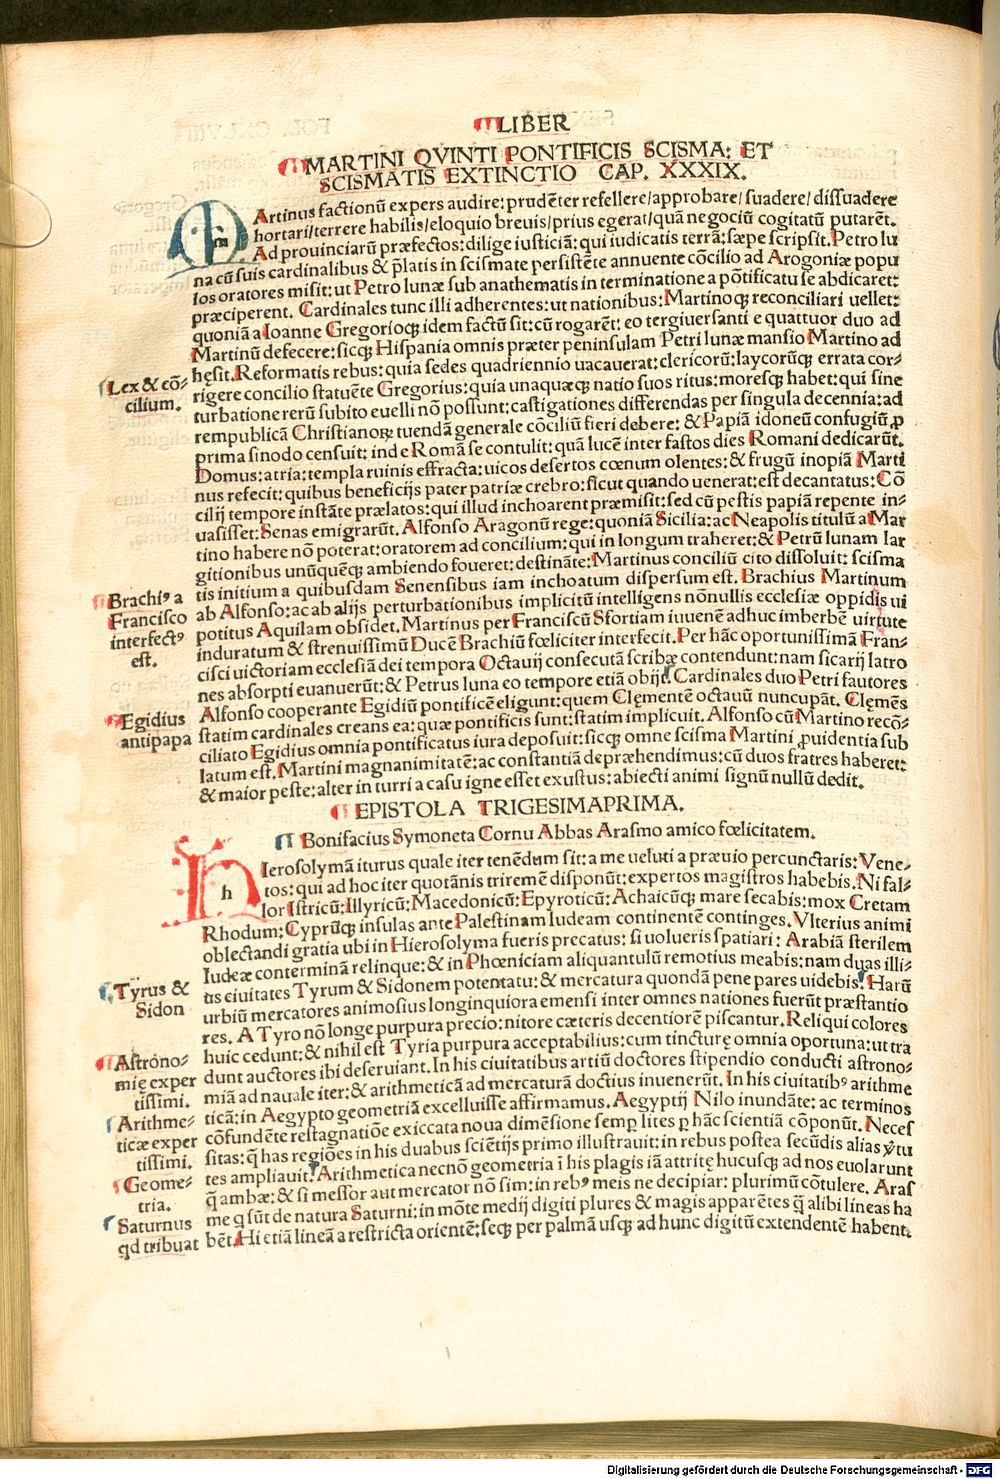 LIBER
MARTINI QVINTI PONTIFICIS SCISMA: ET
SCISMATIS EXTINCTIO CAP. XXXIX.
mArtinus factionū expers audire: prudēter refellere/approbare/suadere/dissuadere
hortari/terrere habilis/eloquio breuis/prius egerat/quā negociū cogitatū putarēt.
Ad prouinciarū præfectos: dilige iusticiā: qui iudicatis terrā: sæpe scripsit. Petro lu
na cū suis cardinalibus & p̄latis in scismate persistēte annuente cōcilio ad Arogoniæ popu
los oratores misit: ut Petro lunæ sub anathematis in terminatione a pōtificatu se abdicaret:
præciperent. Cardinales tunc illi adherentes: ut nationibus: Martinoqȝ reconciliari uellet:
quoniā a Ioanne Gregorioqȝ idem factū sit: cū rogarēt: eo tergiuersanti e quattuor duo ad
Martinū defecere: sicqȝ Hispania omnis præter peninsulam Petri lunæ mansio Martino ad
hęsit. Reformatis rebus: quia sedes quadriennio uacauerat: clericorū: laycorūqȝ errata cor-
Lex & cō-
cilium.
rigere concilio statuēte Gregorius: quia unaquæqȝ natio suos ritus: moresqȝ habet: qui sine
turbatione rerū subito euelli nō possunt: castigationes differendas per singula decennia: ad
rempublicā Christianoꝝ tuendā generale cōciliū fieri debere: & Papiā idoneū confugiū ꝓ
prima sinodo censuit: inde Romā se contulit: quā lucē inter fastos dies Romani dedicarūt.
Domus: atria: templa ruinis effracta: uicos desertos cœnum olentes: & frugū inopiā Marti
nus refecit: quibus beneficijs pater patriæ crebro: sicut quando uenerat: est decantatus: Cō
cilij tempore instāte prælatos: qui illud inchoarent præmisit: sed cū pestis papiā repente in-
uasisset: Senas emigrarūt. Alfonso Aragonū rege: quoniā Sicilia: ac Neapolis titulū a Mar
tino habere nō poterat: oratorem ad concilium: qui in longum traheret: & Petrū lunam lar
gitionibus unūquēqȝ ambiendo foueret: destināte: Martinus conciliū cito dissoluit: scisma
tis initium a quibusdam Senensibus iam inchoatum dispersum est. Brachius Martinum
Brachiꝰ a
Francisco
interfectꝰ
est.
ab Alfonso: ac ab alijs perturbationibus implicitū intelligens nōnullis ecclesiæ oppidis ui
potitus Aquilam obsidet. Martinus per Franciscū Sfortiam iuuenē adhuc imberbē uirtute
induratum & strenuissimū Ducē Brachiū fœliciter interfecit. Per hāc oportunissimā Fran-
cisci uictoriam ecclesiā dei tempora Octauij consecutā scribæ contendunt: nam sicarij latro
nes absorpti euanuerūt: & Petrus luna eo tempore etiā obijt. Cardinales duo Petri fautores
Egidius
antipapa
Alfonso cooperante Egidiū pontificē eligunt: quem Clemētē octauū nuncupāt. Clemēs
statim cardinales creans ea: quæ pontificis sunt: statim implicuit. Alfonso cū Martino recō-
ciliato Egidius omnia pontificatus iura deposuit: sicqȝ omne scisma Martini ꝓuidentia sub
latum est. Martini magnanimitatē: ac constantiā depræhendimus: cū duos fratres haberet:
& maior peste: alter in turri a casu igne esset exustus: abiecti animi signū nullū dedit.
EPISTOLA TRIGESIMAPRIMA.
Bonifacius Symoneta Cornu Abbas Arasmo amico fœlicitatem.
hIerosolymā iturus quale iter tenēdum sit: a me ueluti a præuio percunctaris: Vene-
tos: qui ad hoc iter quotānis triremē disponūt: expertos magistros habebis. Ni fal-
lor Istricū: Illyricū: Macedonicū: Epyroticū: Achaicūqȝ mare secabis: mox Cretam
Rhodum: Cyprūqȝ insulas ante Palestinam Iudeam continentē continges. Vlterius animi
oblectandi gratia ubi in Hierosolyma fueris precatus: si uolueris spatiari: Arabiā sterilem
Iudeæ conterminā relinque: & in Phœniciam aliquantulū remotius meabis: nam duas illi-
Tyrus &
Sidon
us ciuitates Tyrum & Sidonem potentatu: & mercatura quondā pene pares uidebis. Harū
urbiū mercatores animosius longinquiora emensi inter omnes nationes fuerūt præstantio
res. A Tyro nō longe purpura precio: nitore cæteris decentiorē piscantur. Reliqui colores
Astrono-
mię exper
tissimi.
huic cedunt: & nihil est Tyria purpura acceptabilius: cum tincturę omnia oportuna: ut tra
dunt auctores ibi deseruiant. In his ciuitatibus artiū doctores stipendio conducti astrono-
miā ad nauale iter: & arithmeticā ad mercaturā doctius inuenerūt. In his ciuitatibꝰ arithme
Arithme-
ticæ exper
tissimi.
ticā: in Aegypto geometriā excelluisse affirmamus. Aegyptij Nilo inundāte: ac terminos
cōfundēte restagnatiōe exiccata noua dimēsione semp̱ lites p̱ hāc scientiā cōponūt. Neces
sitas: q̄ has regiōes in his duabus sciētijs primo illustrauit: in rebus postea secūdis alias ꝟtu
Geome-
tria.
tes ampliauit. Arithmetica necnō geometria ī his plagis iā attritę hucusqȝ ad nos euolarunt
q̄ ambæ: & si messor aut mercator nō sim: in rebꝰ meis ne decipiar: plurimū cōtulere. Aras
Saturnus
qd tribuat
me q sūt de natura Saturni: in mōte medij digiti plures & magis apparētes q̄ alibi lineas ha
bēt. Hi etiā lineā a restricta orientē: seqȝ per palmā usqȝ ad hunc digitū extendentē habent.
Digitalisierung gefördert durch die Deutsche Forschungsgemeinschaft - DFG